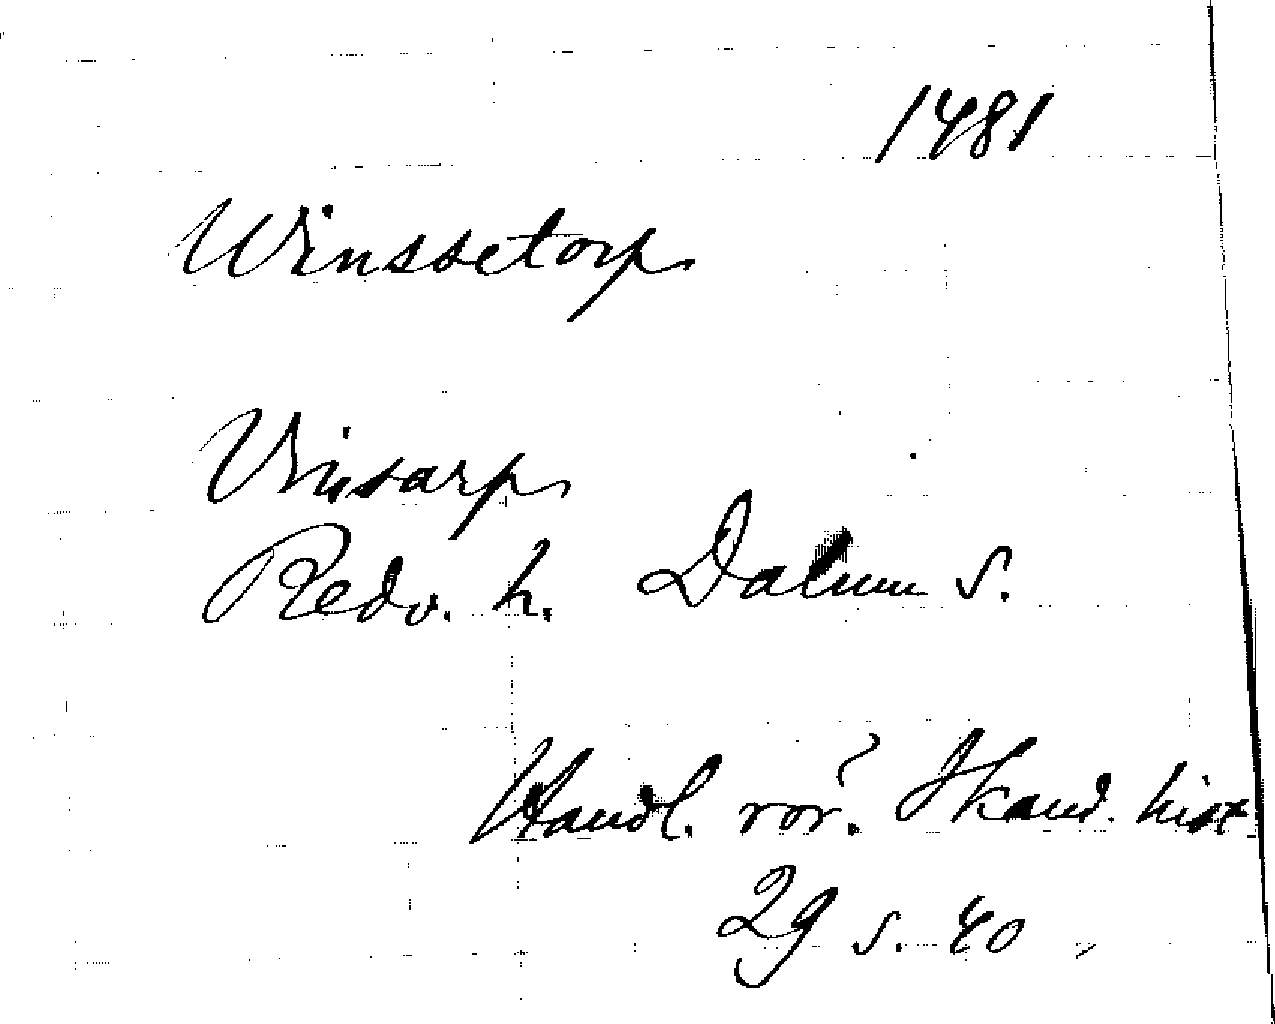 1481
Winssetorp
Vinsarp
Redv. h. Dalum s.
Handl. rör. Skand. hist
29 s. 40